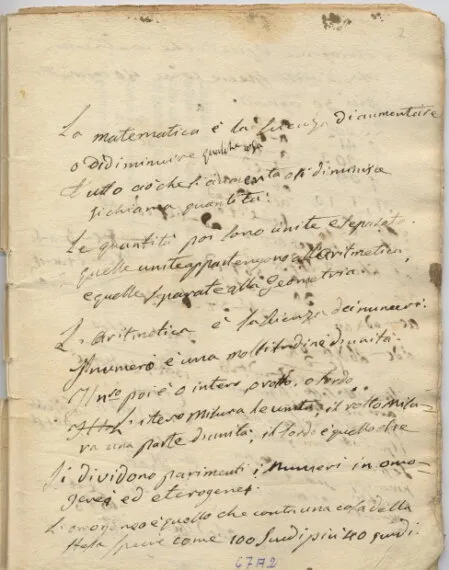 2
La matematica è la scienza di aumentare
o di diminuire qualche cosa
Tutto ciò che si aumenta o si diminuisce
si chiama quantità.
Le quantità poi sono unite e separate
quelle unite appartengono all'aritmetica,
e quelle separate alla Geometria.
L'aritmetica è la scienza dei numeri.
Il numero è una moltitudine d'unità.
Il nro poi è o intero, o rotto, o sordo
L'intero misura le unità, il rotto misu-
ra una parte d'unità, il sordo è quello che
Si dividono parimenti i numeri in omo-
genei ed eterogenei.
L'omogeneo è quello che conta una cosa della
stessa specie come 100 scudi più 40 scudi.
67A2